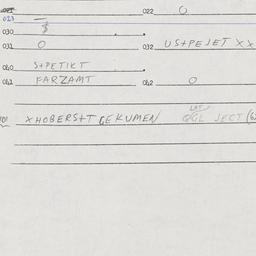 022 O
023 —
030 $
031 O 032 USTPEJET XX
040 STPETIKT
041 FARZAMT 042 O
XHOBERSTT GEKUMEN JECT